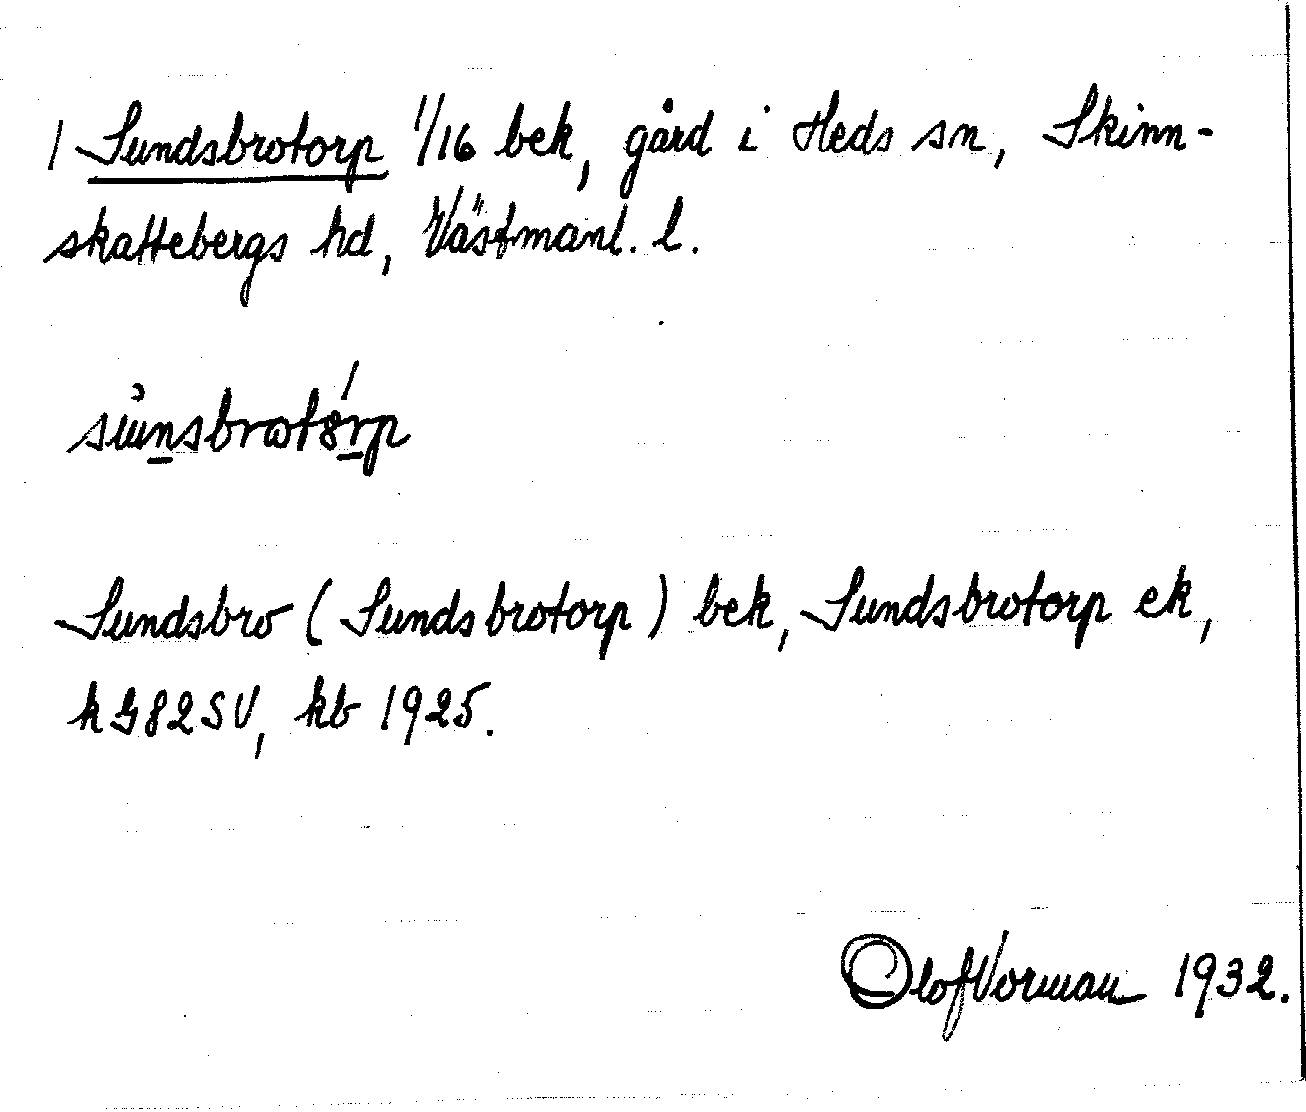 1 Sundsbrotorp 1/16 bek, gård i Heds sn, Skinn-
skattebergs hd, Västmanl. l.
Sundsbro (Sundsbrotorp) bek, Sundsbrotorp ek,
k G82SV, kb 1925.
Olof Vorman 1932.